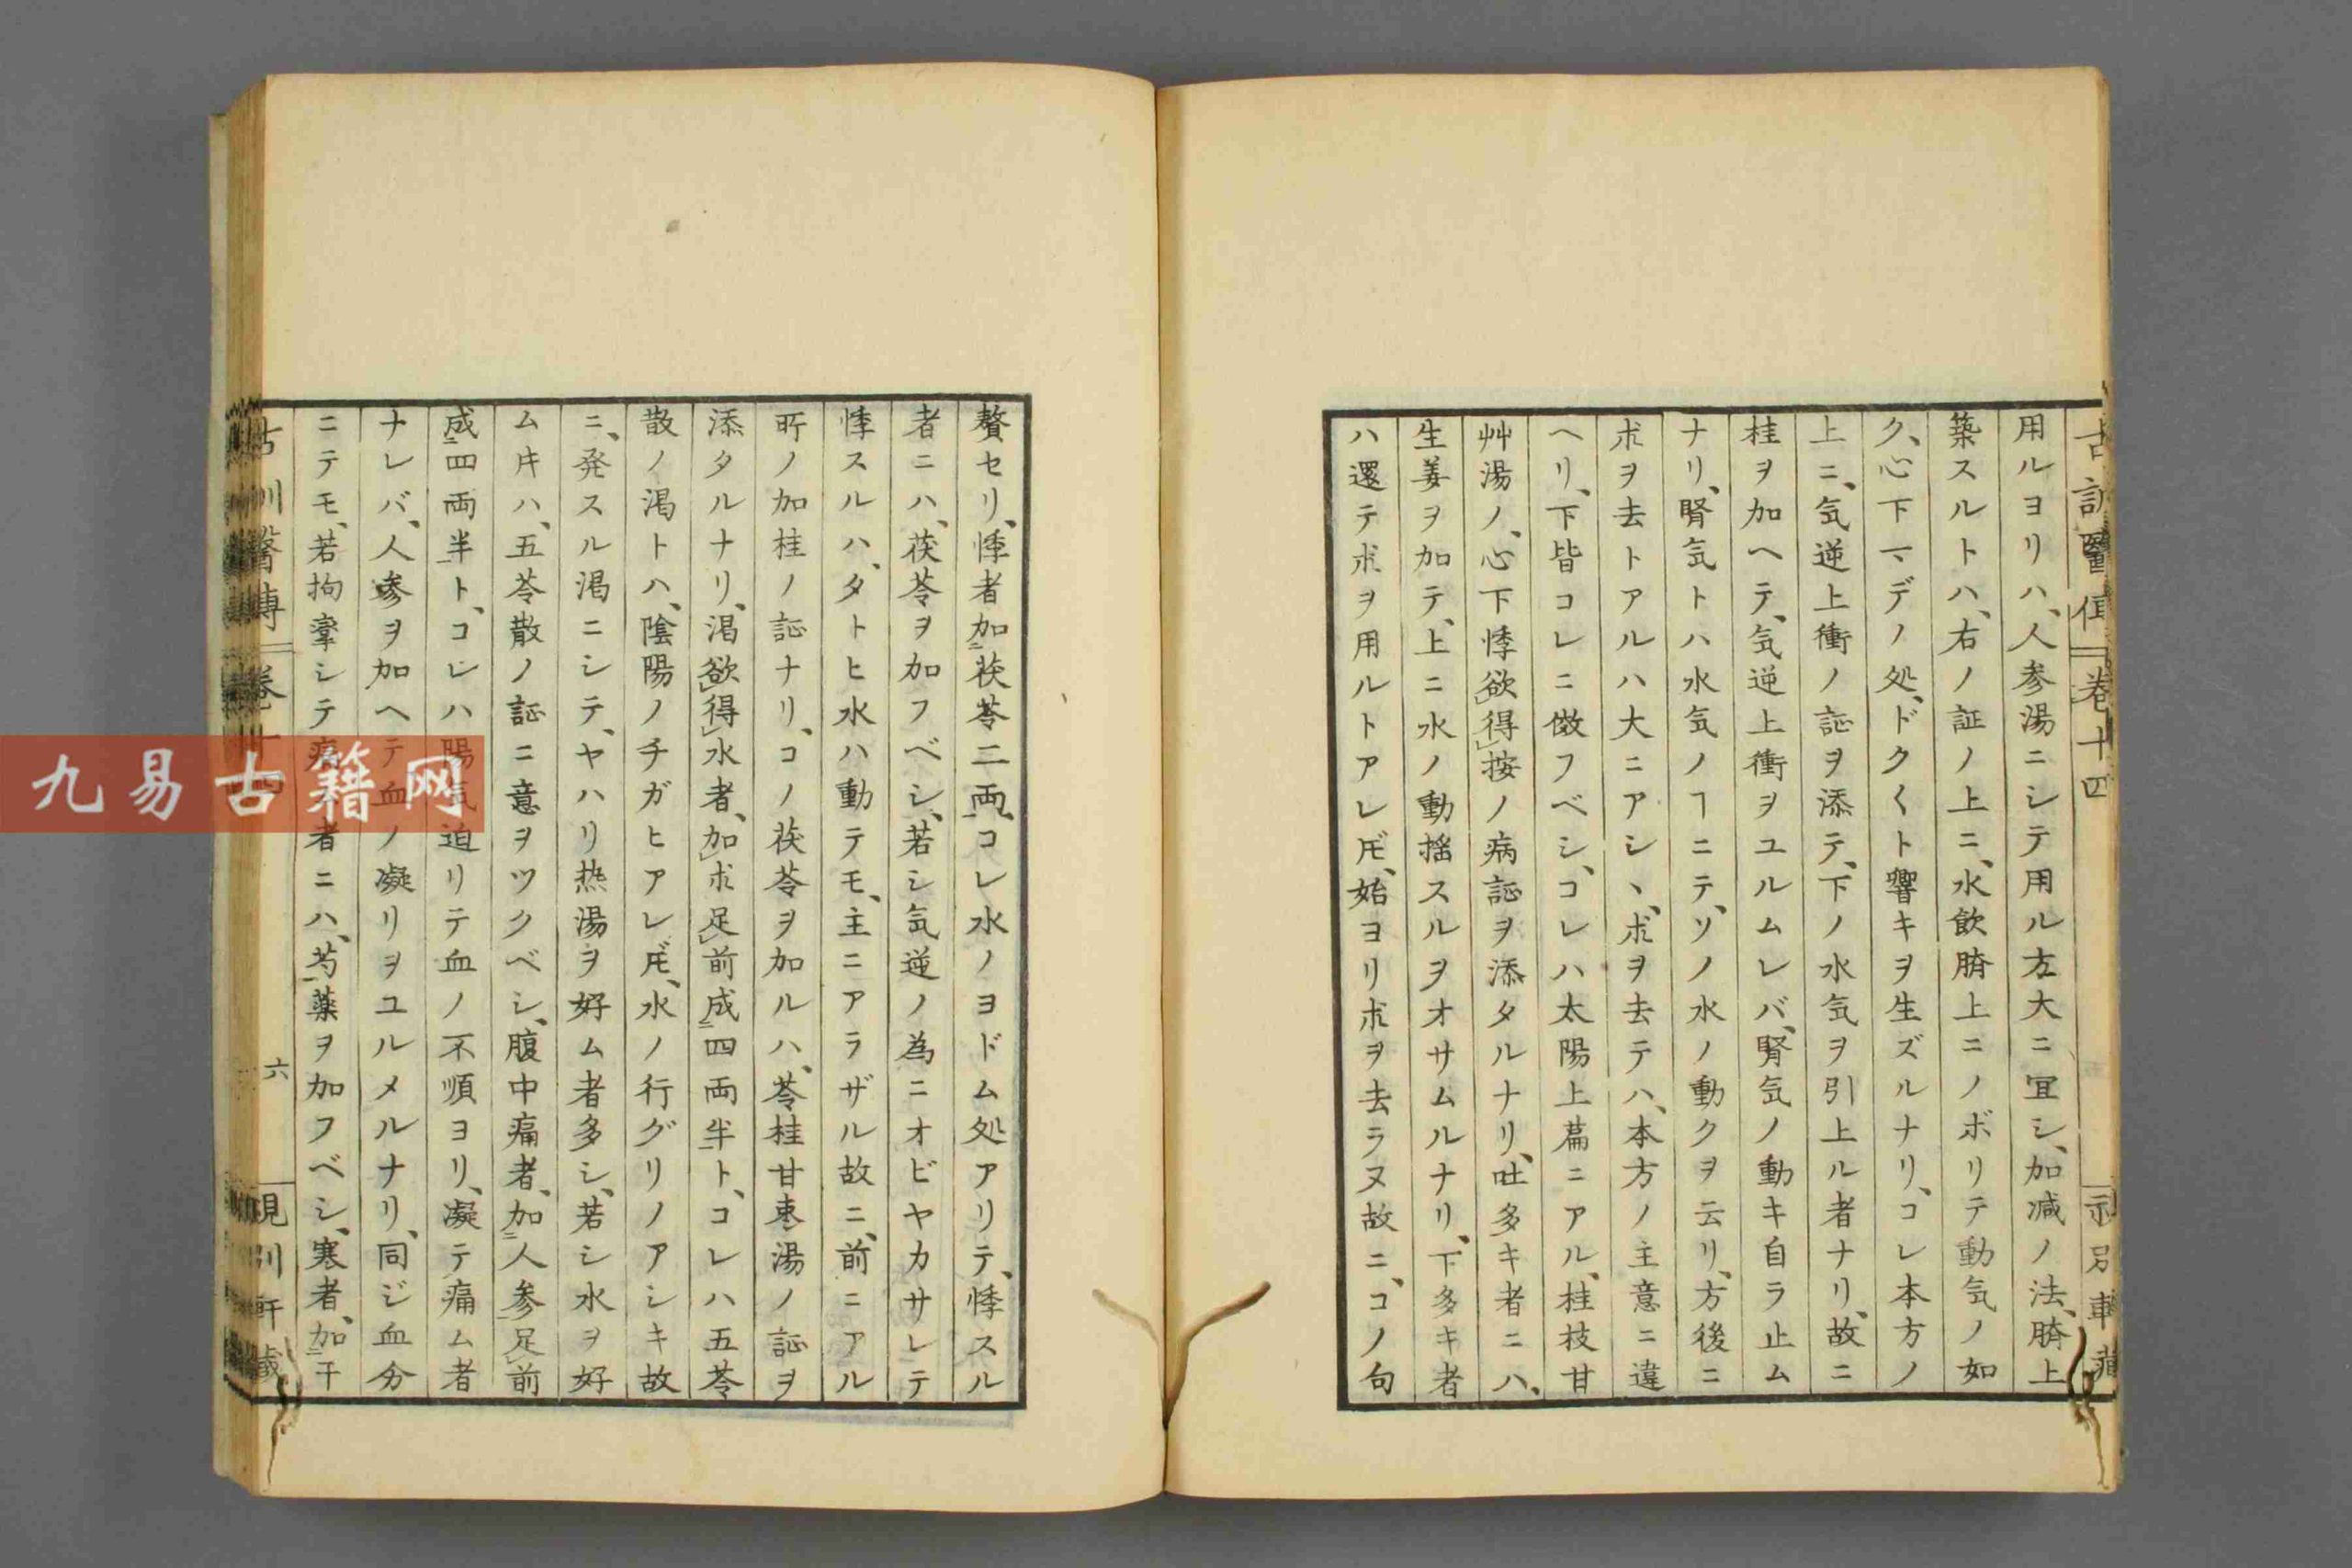 古訓醫傳 卷十四
用ルヨリハ、人参湯ニシテ用ル方大ニ宜シ、加減ノ法、臍上
築スルトハ、右ノ証ノ上ニ、水飲臍上ニノボリテ動気ノ如
ク、心下マデノ処、ドク〱ト響キヲ生ズルナリ、コレ本方ノ
上ニ、気逆上衝ノ証ヲ添テ、下ノ水気ヲ引上ル者ナリ、故ニ
桂ヲ加ヘテ、気逆上衝ヲユルムレバ、腎気ノ動キ自ラ止ム
ナリ、腎気トハ水気ノヿニテ、ソノ水ノ動クヲ云リ、方後ニ
朮ヲ去トアルハ大ニアシヽ、朮ヲ去テハ、本方ノ主意ニ違
ヘリ、下皆コレニ傚フベシ、コレハ太陽上篇ニアル、桂枝甘
艸湯ノ、心下悸欲得按ノ病証ヲ添タルナリ、吐多キ者ニハ、
生姜ヲ加テ、上ニ水ノ動揺スルヲオサムルナリ、下多キ者
ハ還テ朮ヲ用ルトアレ𪜈、始ヨリ朮ヲ去ラヌ故ニ、コノ句
贅セリ、悸者加茯苓二両、コレ水ノヨドム処アリテ、悸スル
者ニハ、茯苓ヲ加フベシ、若シ気逆ノ為ニオビヤカサレテ
悸スルハ、タトヒ水ハ動テモ、主ニアラザル故ニ、前ニアル
所ノ加桂ノ証ナリ、コノ茯苓ヲ加ルハ、苓桂甘棗湯ノ証ヲ
添タルナリ、渇欲得水者、加朮足前成四両半ト、コレハ五苓
散ノ渇トハ、陰陽ノチガヒアレ𪜈、水ノ行グリノアシキ故
ニ、発スル渇ニシテ、ヤハリ热湯ヲ好ム者多シ、若シ水ヲ好
ム片ハ、五苓散ノ証ニ意ヲツクベシ、腹中痛者、加人参足前
成四両半ト、コレハ陽気迫リテ血ノ不順ヨリ、凝テ痛ム者
ナレバ、人参ヲ加ヘテ血ノ凝リヲユルメルナリ、同ジ血分
ニテモ、若拘攣シテ痛ム者ニハ、芍薬ヲ加フベシ、寒者、加干
古訓醫傳 卷十四 六
九易古籍网